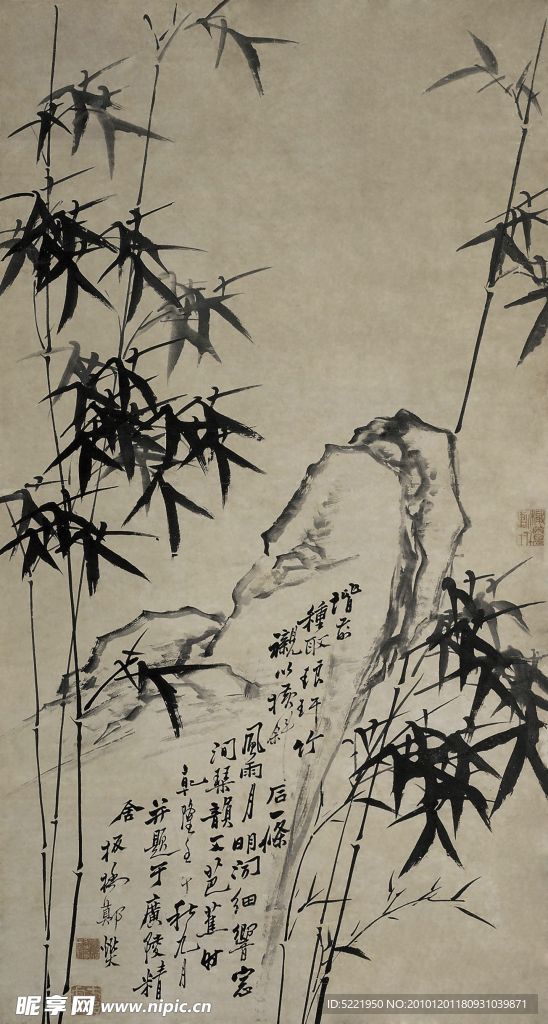 階前
種取琅玕竹
襯以橫斜石一條
風雨月明聞細響窓
間琴韻芭蕉時
乾隆壬午秋九月
并題于廣陵精
舍板橋鄭燮
昵享网 www.nipic.cn
ID:5221950 NO:20101201180931039871